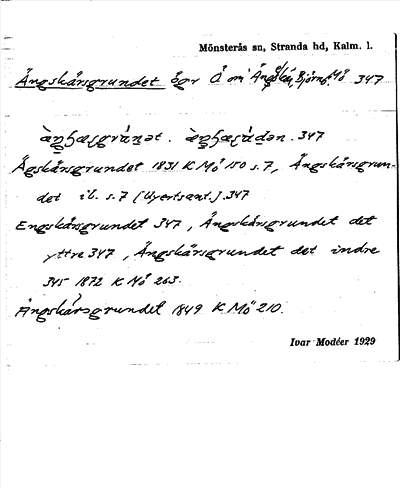 Mönsterås sn, Stranda hd, Kalm. l.
Ängskärsgrundet Ö om Ängskär, Björnö, Mö 347
347
Ägskärsgrundet 1831 K Mö 150 s. 7, Ängskärsgrun-
det ib. s. 7 (Uyertsant.) 347
Engskärsgrundet 347, Ängskärsgrundet det
yttre 347, Ängskärsgrundet det indre
345 1872 K Mö 263.
Ängskärsgrundet 1849 K Mö 210.
Ivar Modéer 1929